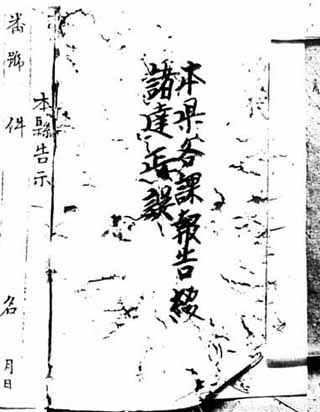 本県各課報告綴
諸達正誤
本縣告示
番號 件 名 月日